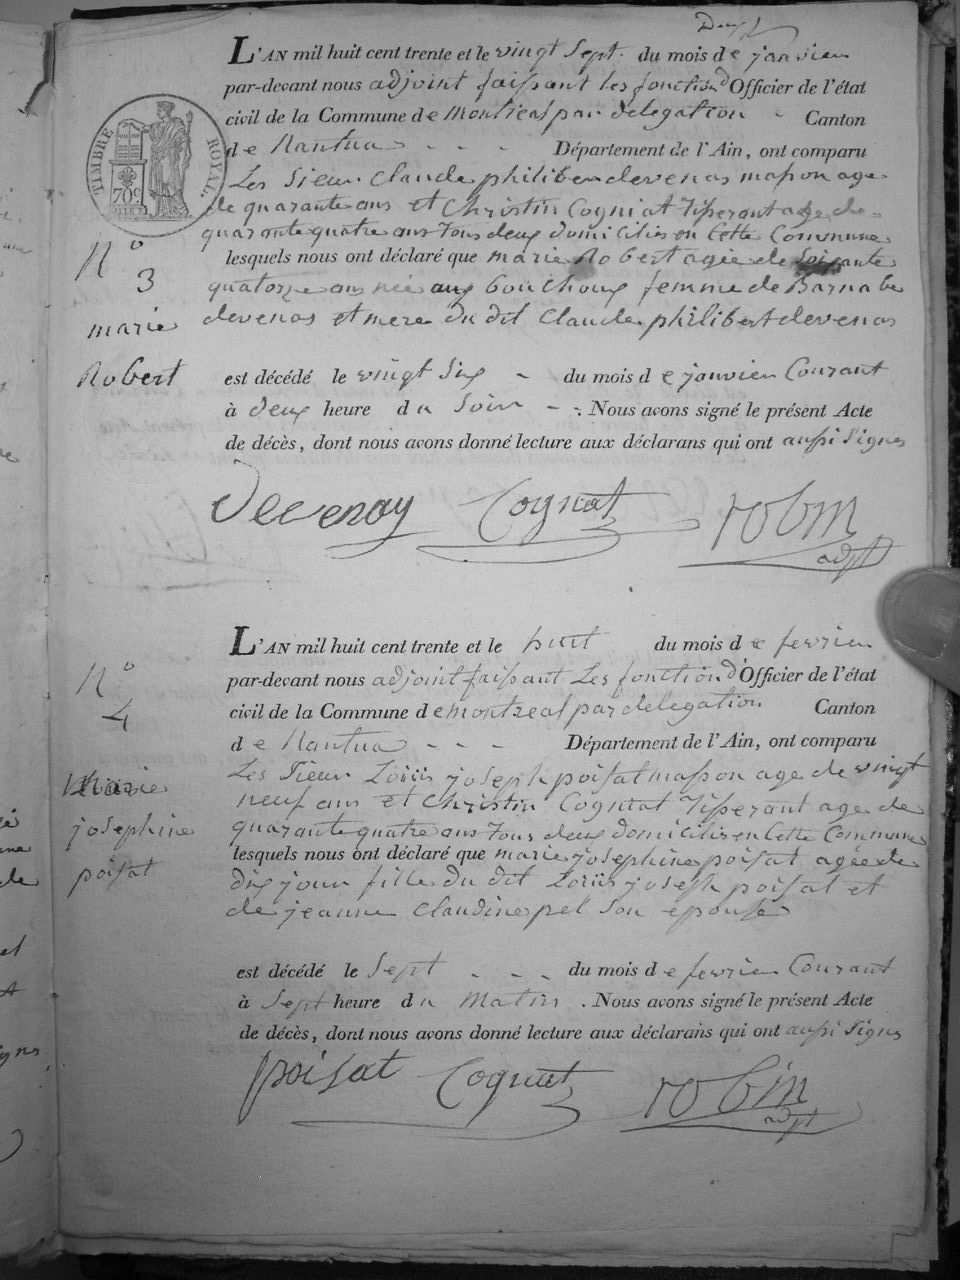 Deux
L'AN mil huit cent trente et le vingt Sept. du mois de janvier
par-devant nous adjoint faissant les fonction d'Officier de l'état
civil de la Commune de Montreal par delegation - Canton
de Nantua - - - Département de l'Ain, ont comparu
TIMBRE ROYAL.
70c
Les Sieur Claude philibert devenas masson age
de quarante ans et Christin Cogniat tisserant age de
quarante quatre ans tous deux domiciliés en Cette Commune
N° 3
marie
Robert
lesquels nous ont déclaré que marie Robert agée de soisante
quatorze ans née aux bouchoux femme de Barnabé
devenas et mere du dit Claude philibert devenas
est décédé le vingt Six - du mois de janvier Courant
à deux heure du Soir - . Nous avons signé le présent Acte
de décès, dont nous avons donné lecture aux déclarans qui ont aussi Signes
Devenay Cognat robin
adjt
L'AN mil huit cent trente et le huit du mois de fevrier
par-devant nous adjoint faissant Les fonction d'Officier de l'état
civil de la Commune de montreal par delegation Canton
de Nantua - - - Département de l'Ain, ont comparu
N° 4
Marie
josephine
poisat
Les Sieur Loüis joseph poisat masson age de vingt
neuf ans et Christin Cogniat tisserant age de
quarante quatre ans tous deux domiciliés en Cette Commune
lesquels nous ont déclaré que marie josephine poisat agée de
dix jour fille du dit Loüis joseph poisat et
de jeanne Claudine pel son epouse
est décédé le Sept - - - du mois de fevrier Courant
à Sept heure du Matin . Nous avons signé le présent Acte
de décès, dont nous avons donné lecture aux déclarans qui ont aussi Signes
poisat Cognat robin
adjt